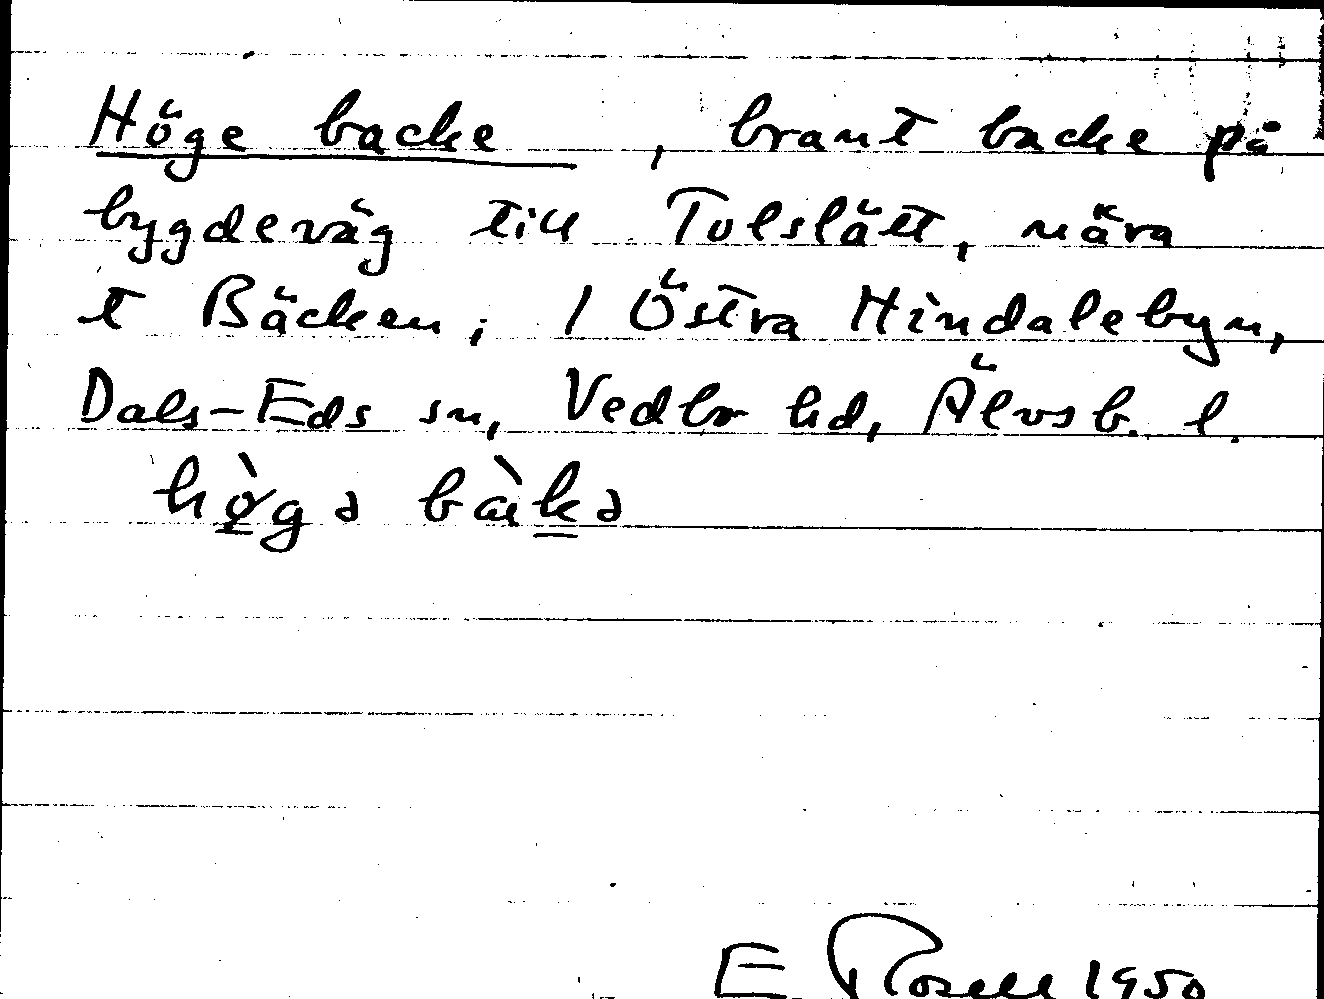 Höge backe, brant backe på
bygdeväg till Tolslätt, nära
t Bäcken, i Östra Hindalebyn,
Dals-Eds sn, Vedbo hd, Älvsb. l.
hø̀gə bàkə
E Rosell 1950